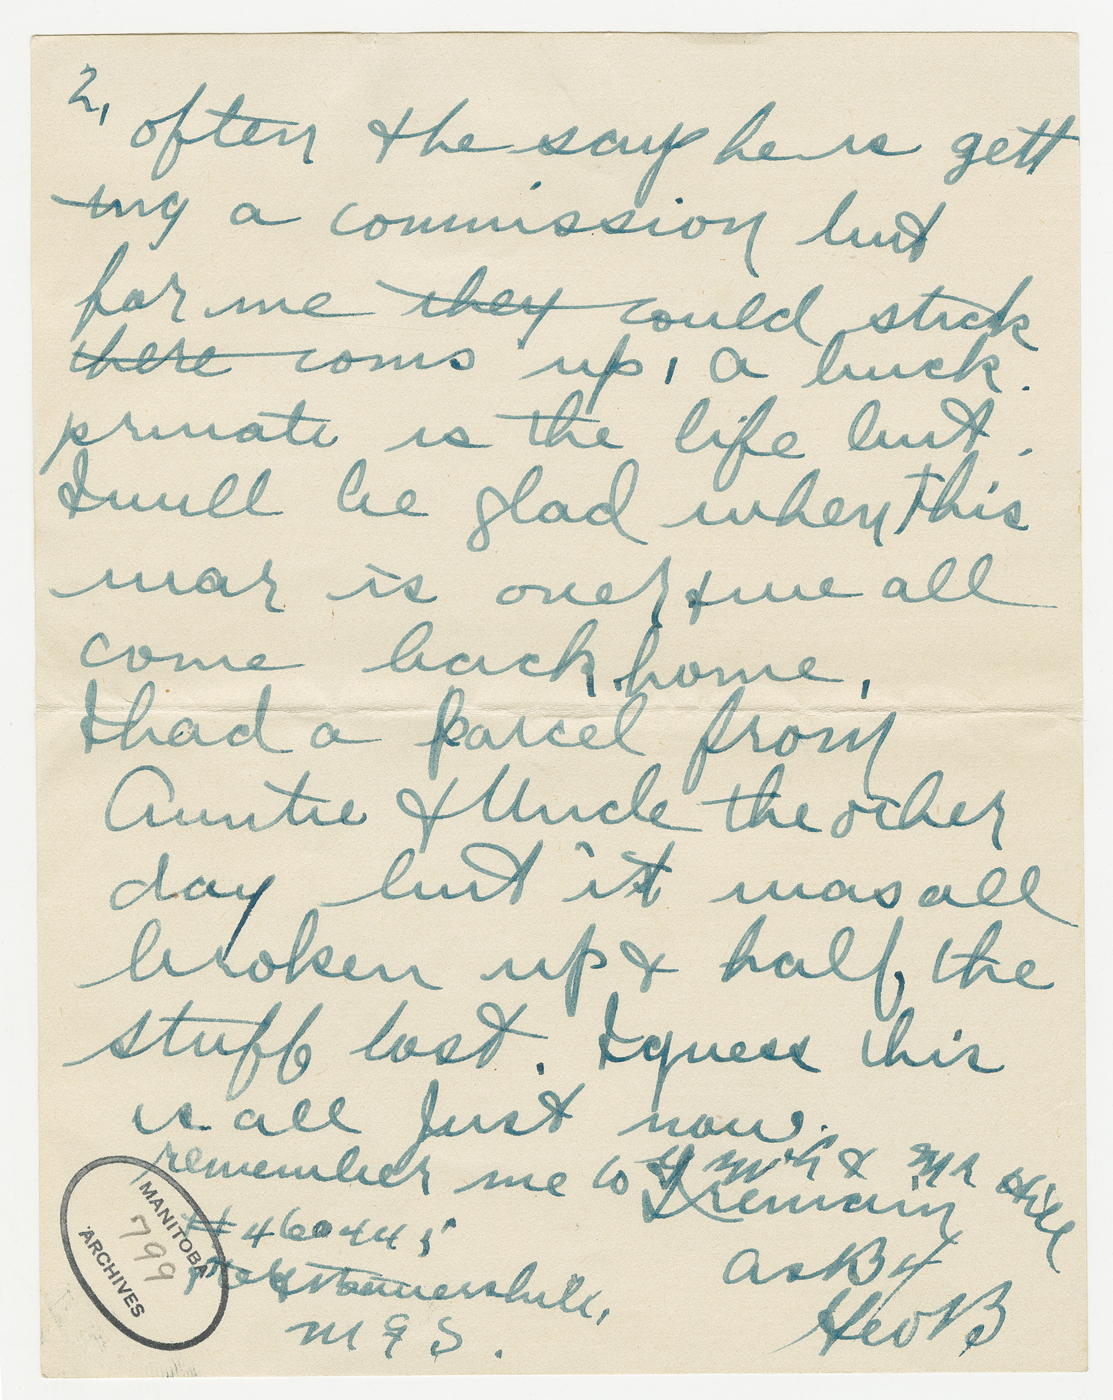 2,
often the say he is gett
ing a commission but
for me they could stick
there coms up, a buck.
private is the life but.
I will be glad when this
war is over & we all
come back home,
I had a parcel from
Auntie & Uncle the other
day but it was all
broken up & half, the
stuff lost. I guess this
is all Just now.
remember me to & Mr Hill
I remain
#460441
As B4
Geo B
MANITOBA
799
ARCHIVES